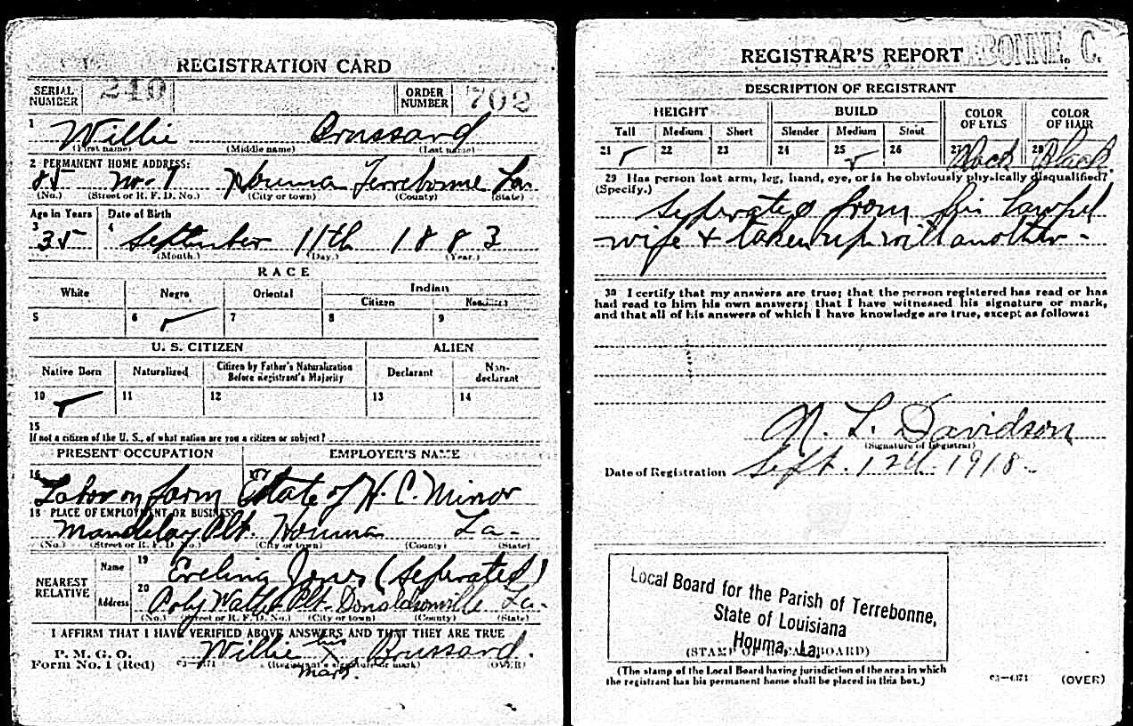 REGISTRATION CARD
SERIAL NUMBER 240 ORDER NUMBER 702
1 Willie Brussard
(First name) (Middle name) (Last name)
2 PERMANENT HOME ADDRESS:
85 no. 1 Houma Terrebonne La
(No.) (Street or R. F. D. No.) (City or town) (County) (State)
Age in Years Date of Birth
3 35 4 September 11th 1883
(Month.) (Day.) (Year.)
RACE
White Negro Oriental Indian
Citizen Noncitizen
5 6 ✓ 7 8 9
U. S. CITIZEN ALIEN
Native Born Naturalized Citizen by Father's Naturalization Before Registrant's Majority Declarant Non-declarant
10 ✓ 11 12 13 14
15
If not a citizen of the U. S., of what nation are you a citizen or subject?
PRESENT OCCUPATION EMPLOYER'S NAME
16 Labor on farm 17 Estate of H. C. Minor
18 PLACE OF EMPLOYMENT OR BUSINESS:
Mandelay Plt. Houma La-
(No.) (Street or R. F. D. No.) (City or town) (County) (State)
NEAREST RELATIVE Name 19 Eveling Jones (Seperated)
Address 20 Plt. Donaldsonville La-
(No.) (Street or R. F. D. No.) (City or town) (County) (State)
I AFFIRM THAT I HAVE VERIFIED ABOVE ANSWERS AND THAT THEY ARE TRUE
P. M. G. O.
Form No. 1 (Red) 03-6171 Willie his X mark Brussard.
(Registrant's signature or mark) (OVER)
REGISTRAR'S REPORT
DESCRIPTION OF REGISTRANT
HEIGHT BUILD COLOR OF EYES COLOR OF HAIR
Tall Medium Short Slender Medium Stout
21 ✓ 22 23 24 25 ✓ 26 27 Black 28 Black
29 Has person lost arm, leg, hand, eye, or is he obviously physically disqualified?
(Specify.)
Seperated from his lawful
wife + taken up with another-
30 I certify that my answers are true; that the person registered has read or has
had read to him his own answers; that I have witnessed his signature or mark,
and that all of his answers of which I have knowledge are true, except as follows:
N. L. Davidson
(Signature of Registrar)
Date of Registration Sept. 12th 1918-
Local Board for the Parish of Terrebonne,
State of Louisiana
Houma, La.
(STAMP OF LOCAL BOARD)
(The stamp of the Local Board having jurisdiction of the area in which
the registrant has his permanent home shall be placed in this box.)
03-6171 (OVER)